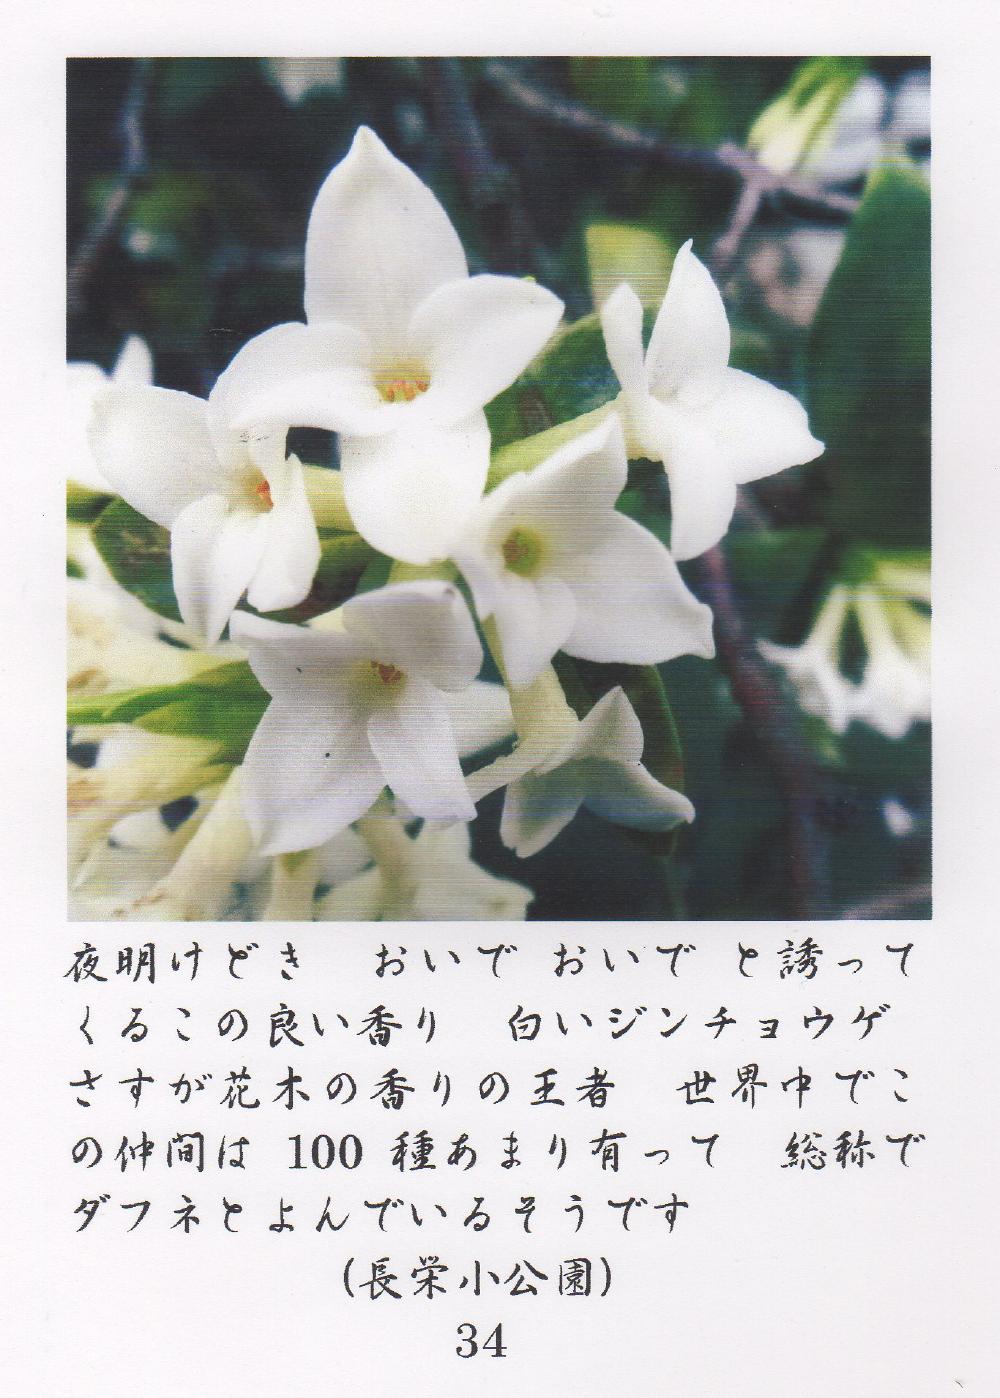 夜明けどき　おいで おいで と誘って
くるこの良い香り　白いジンチョウゲ
さすが花木の香りの王者　世界中でこ
の仲間は 100 種あまり有って　総称で
ダフネとよんでいるそうです
(長栄小公園)
34